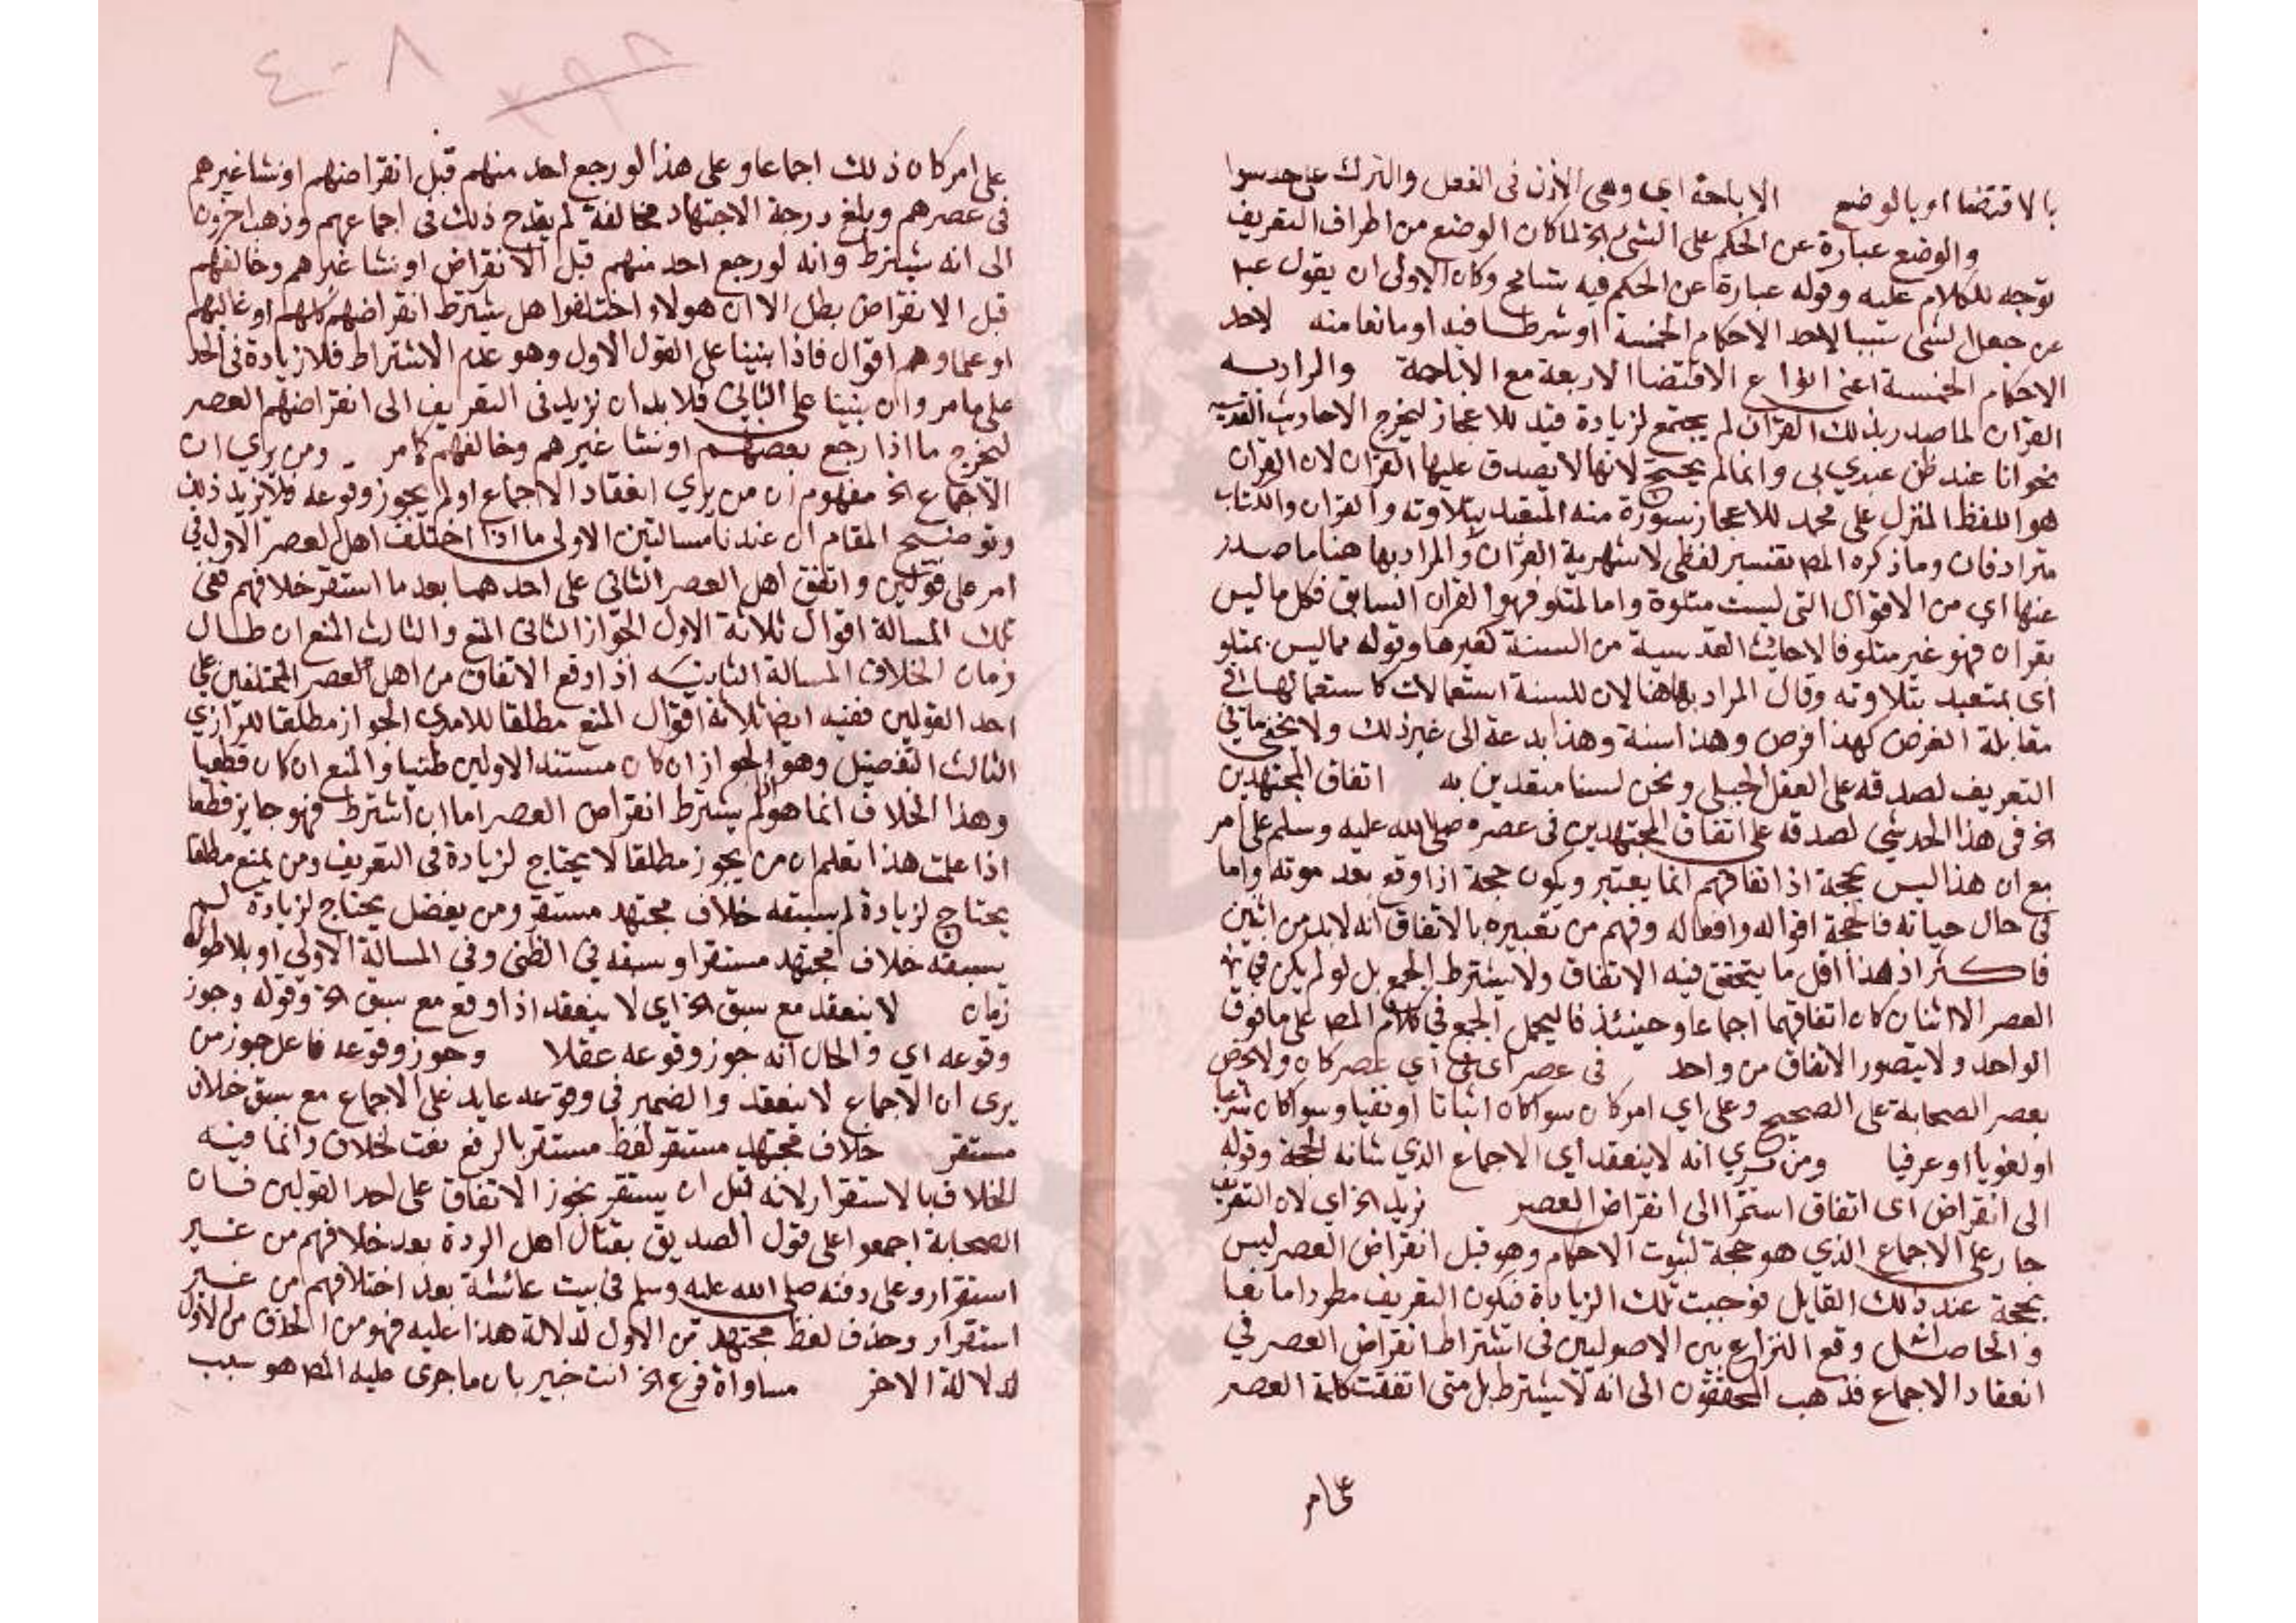 بالاقتضا او بالوضع الاباحة اي وهي الاذن في الفعل والترك على حد سوا
والوضع عبارة عن الحكم على الشئ الخ لما كان الوضع من اطراف التعريف
توجه للكلام عليه وقوله عبارة عن الحكم فيه تسامح وكان الاولى ان يقول عبر
عن جعل الشي سببا لاحد الاحكام الخمسة او شرطا فيه او مانعا منه لاحد
الاحكام الخمسة اعني انواع الاقتضا الاربعة مع الاباحة والمراد به
القران لما صدر بذلك القران لم يحتج لزيادة قيد للاعجاز ليخرج الاحاديث القدسية
نحو انا عند ظن عبدي بي وانما لم يحتج لانها لا يصدق عليها القران لان القران
هو اللفظ المنزل على محمد للاعجاز بسورة منه المتعبد بتلاوته والقران والكتاب
مترادفان وما ذكره المص تفسير لفظي لاشهرية القران والمراد بها هنا ما صدر
عنها اي من الاقوال التي ليست متلوة واما المتلو فهو القران السابق فكل ما ليس
بقران فهو غير متلو فالاحاديث القدسية من السنة كغيرها وقوله مما ليس بمتلو
اي بمتعبد بتلاوته وقال المراد بها هنا لان للسنة استعمالات كاستعمالها في
مقابلة الفرض كهذا فرض وهذا سنة وهذا بدعة الى غير ذلك ولا يخفى ما في
التعريف لصدقه على الفعل الجبلي ونحن لسنا متعبدين به اتفاق المجتهدين
الخ في هذا الحد شي لصدقه على اتفاق المجتهدين في عصره صلى الله عليه وسلم على امر
مع ان هذا ليس بحجة اذ اتفاقهم انما يعتبر ويكون حجة اذا وقع بعد موته واما
في حال حياته فالحجة اقواله وافعاله وفهم من تعبيره بالاتفاق انه لا بد من اثنين
فاكثر اذ هذا اقل ما يتحقق فيه الاتفاق ولا يشترط الجمع بل لو لم يكن في
العصر الا اثنان كان اتفاقهما اجماعا وحينئذ فاليحمل الجمع في كلام المص على ما فوق
الواحد ولا يتصور الاتفاق من واحد في عصر اي في اي عصر كان ولا يخص
بعصر الصحابة على الصحيح وعلى اي امر كان سوا كان اثباتا او نفيا وسوا كان شرعيا
او لغويا او عرفيا ومن يري انه لا ينعقد اي الاجماع الذي شانه الحجة وقوله
الى انقراض اي اتفاق استمر الى انقراض العصر نزيد الخ اي لان التعريف
جار على الاجماع الذي هو حجة لثبوت الاحكام وهو قبل انقراض العصر ليس
بحجة عند ذلك القايل فوجبت تلك الزيادة فيكون التعريف مطردا مانعا
والحاصل وقع النزاع بين الاصوليين في اشتراط انقراض العصر في
انعقاد الاجماع فذهب المحققون الى انه لا يشترط بل متى اتفقت كلمة العصر
على امر
على امر كان ذلك اجماعا وعلى هذا لو رجع احد منهم قبل انقراضهم او نشا غيرهم
في عصرهم وبلغ درجة الاجتهاد مخالفة لم يقدح ذلك في اجماعهم وذهب اخرون
الى انه يشترط وانه لو رجع احد منهم قبل الانقراض او نشا غيرهم وخالفهم
قبل الانقراض بطل الا ان هولاء اختلفوا هل يشترط انقراضهم كلهم او غالبهم
او علماوهم اقوال فاذا بنينا على القول الاول وهو عدم الاشتراط فلا زيادة في الحد
على ما مر وان بنينا على الثاني فلا بد ان نزيد في التعريف الى انقراضهم العصر
ليخرج ما اذا رجع بعضهم او نشا غيرهم وخالفهم كما مر ومن يري ان
الاجماع الخ مفهوم ان من يري انعقاد الاجماع او لم يجوز وقوعه فلا نزيد ذلك
وتوضيح المقام ان عندنا مسالتين الاولى ما اذا اختلف اهل العصر الاول في
امر على قولين واتفق اهل العصر الثاني على احدهما بعد ما استقر خلافهم ففي
تلك المسالة اقوال ثلاثة الاول الجواز الثاني المنع والثالث المنع ان طال
زمان الخلاف المسالة الثانية اذا وقع الاتفاق من اهل العصر المختلفين على
احد القولين ففيه ايضا ثلاثة اقوال المنع مطلقا للامدي الجواز مطلقا للرازي
الثالث التفصيل وهو الجواز ان كان مستند الاولين ظنيا والمنع ان كان قطعيا
وهذا الخلاف انما هو اذا لم يشترط انقراض العصر اما ان اشترط فهو جايز قطعا
اذا علمت هذا تعلم ان من يجوز مطلقا لا يحتاج لزيادة في التعريف ومن يمنع مطلقا
يحتاج لزيادة لم يسبقه خلاف مجتهد مستقر ومن يفصل يحتاج لزيادة لم
يسبقه خلاف مجتهد مستقر او سبقه في الظني وفي المسالة الاولى او بلا طول
زمان لا ينعقد مع سبق الخ اي لا ينعقد اذا وقع مع سبق الخ وقوله وجوز
وقوعه اي والحال انه جوز وقوعه عقلا وجوز وقوعه فاعل جوز من
يرى ان الاجماع لا ينعقد والضمير في وقوعه عايد على الاجماع مع سبق خلاف
مستقر خلاف مجتهد مستقر لفظ مستقر بالرفع نعت لخلاف وانما قيد
الخلاف بالاستقرار لانه قبل ان يستقر يجوز الاتفاق على احد القولين فان
الصحابة اجمعوا على قول الصديق بقتال اهل الردة بعد خلافهم من غير
استقرار وعلى دفنه صلى الله عليه وسلم في بيت عائشة بعد اختلافهم من غير
استقرار وحذف لفظ مجتهد من الاول لدلالة هذا عليه فهو من الحذف من الاول
لدلالة الاخر مساواة فرع الخ انت خبير بان ما جرى عليه المص هو سبب